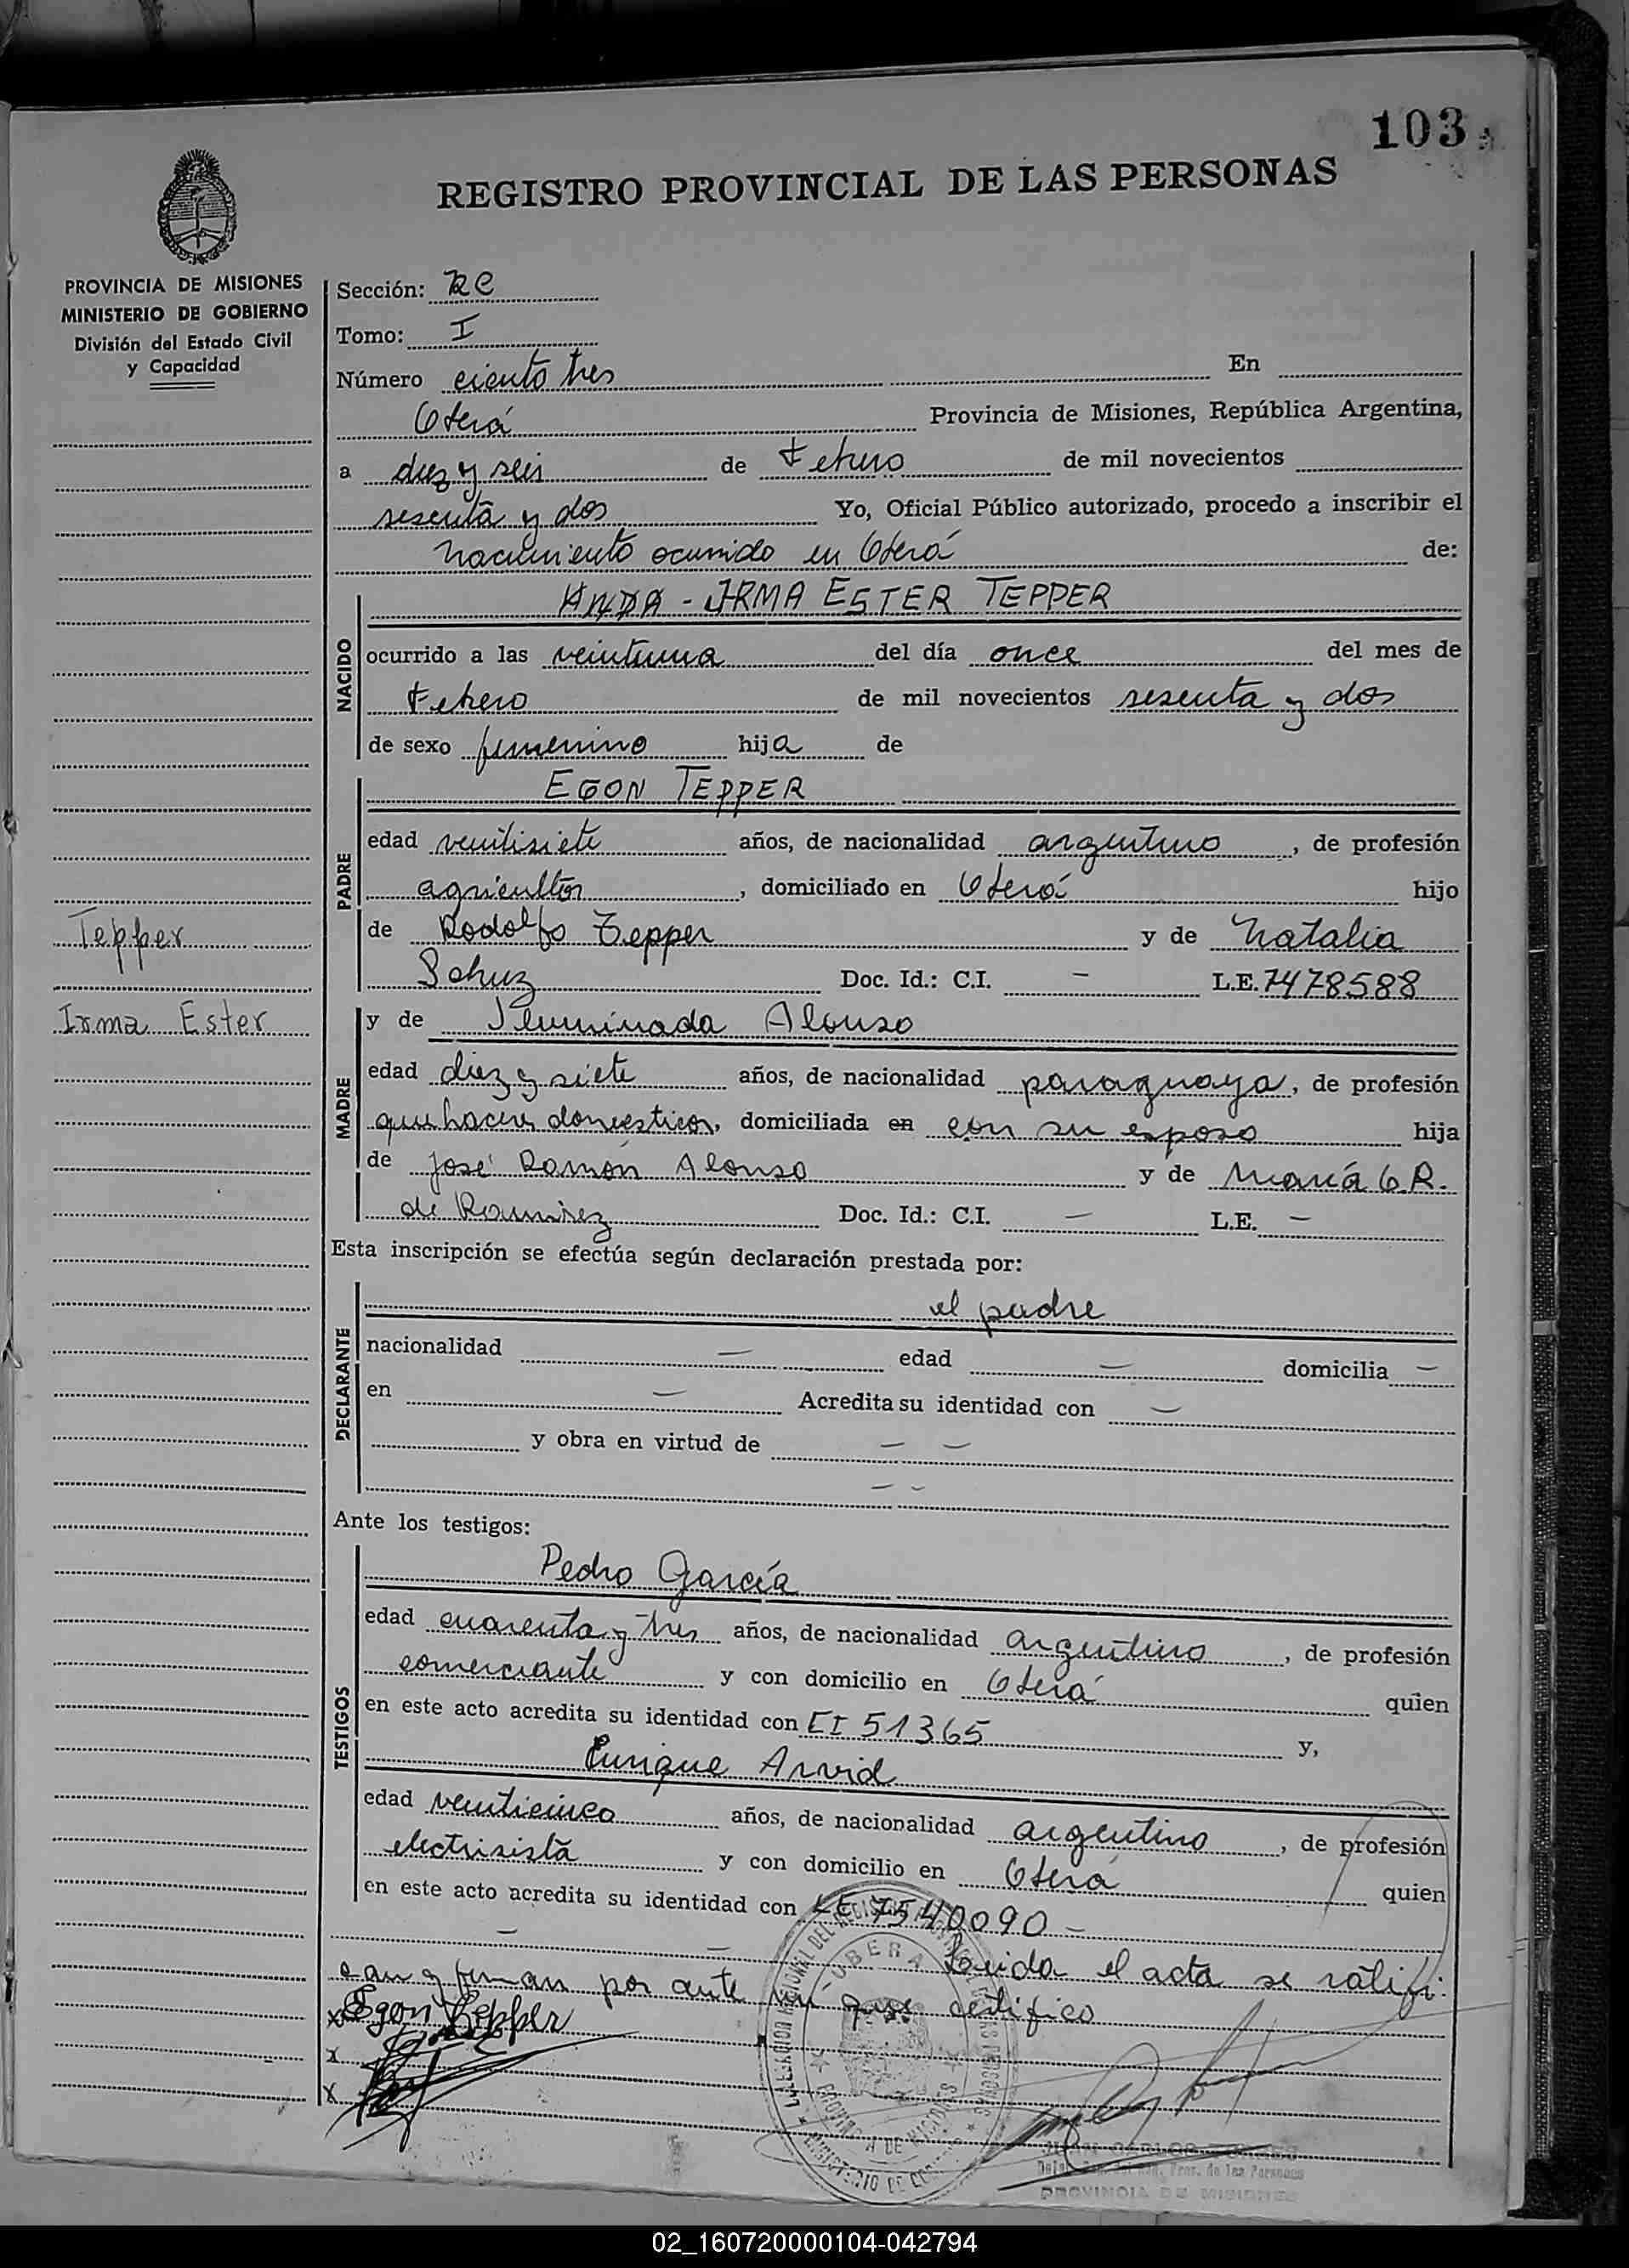 103
REGISTRO PROVINCIAL DE LAS PERSONAS
PROVINCIA DE MISIONES
MINISTERIO DE GOBIERNO
División del Estado Civil
y Capacidad
Tepper
Irma Ester
Sección:
Tomo: I
Número ciento tres En
Oberá Provincia de Misiones, República Argentina,
a diez y seis de Febrero de mil novecientos
sesenta y dos Yo, Oficial Público autorizado, procedo a inscribir el
nacimiento ocurrido en Oberá de:
IRMA ESTER TEPPER
NACIDO
ocurrido a las veintiuna del día once del mes de
Febrero de mil novecientos sesenta y dos
de sexo femenino hija de
EGON TEPPER
PADRE
edad veintisiete años, de nacionalidad argentino, de profesión
agricultor, domiciliado en Oberá hijo
de Rodolfo Tepper y de Natalia
Schuz Doc. Id.: C.I. — L.E. 7478588
y de Iluminada Alonso
MADRE
edad diez y siete años, de nacionalidad paraguaya, de profesión
quehaceres domésticos, domiciliada en con su esposo hija
de José Ramón Alonso y de María G.R.
de Ramirez Doc. Id.: C.I. — L.E. —
Esta inscripción se efectúa según declaración prestada por:
el padre
DECLARANTE
nacionalidad — edad — domicilia —
en — Acredita su identidad con —
y obra en virtud de — —
— —
Ante los testigos:
Pedro García
TESTIGOS
edad cuarenta y tres años, de nacionalidad argentino, de profesión
comerciante y con domicilio en Oberá quien
en este acto acredita su identidad con CI 51365 y,
Enrique Arvid
edad veinticinco años, de nacionalidad argentino, de profesión
electrisista y con domicilio en Oberá quien
en este acto acredita su identidad con LE 7540090 —
— — Leida el acta se ratifi-
can y firman por ante mí que certifico
x Egon Tepper
x
x
OBERA
PROVINCIA DE MISIONES
PROVINCIA DE MISIONES
02_160720000104-042794